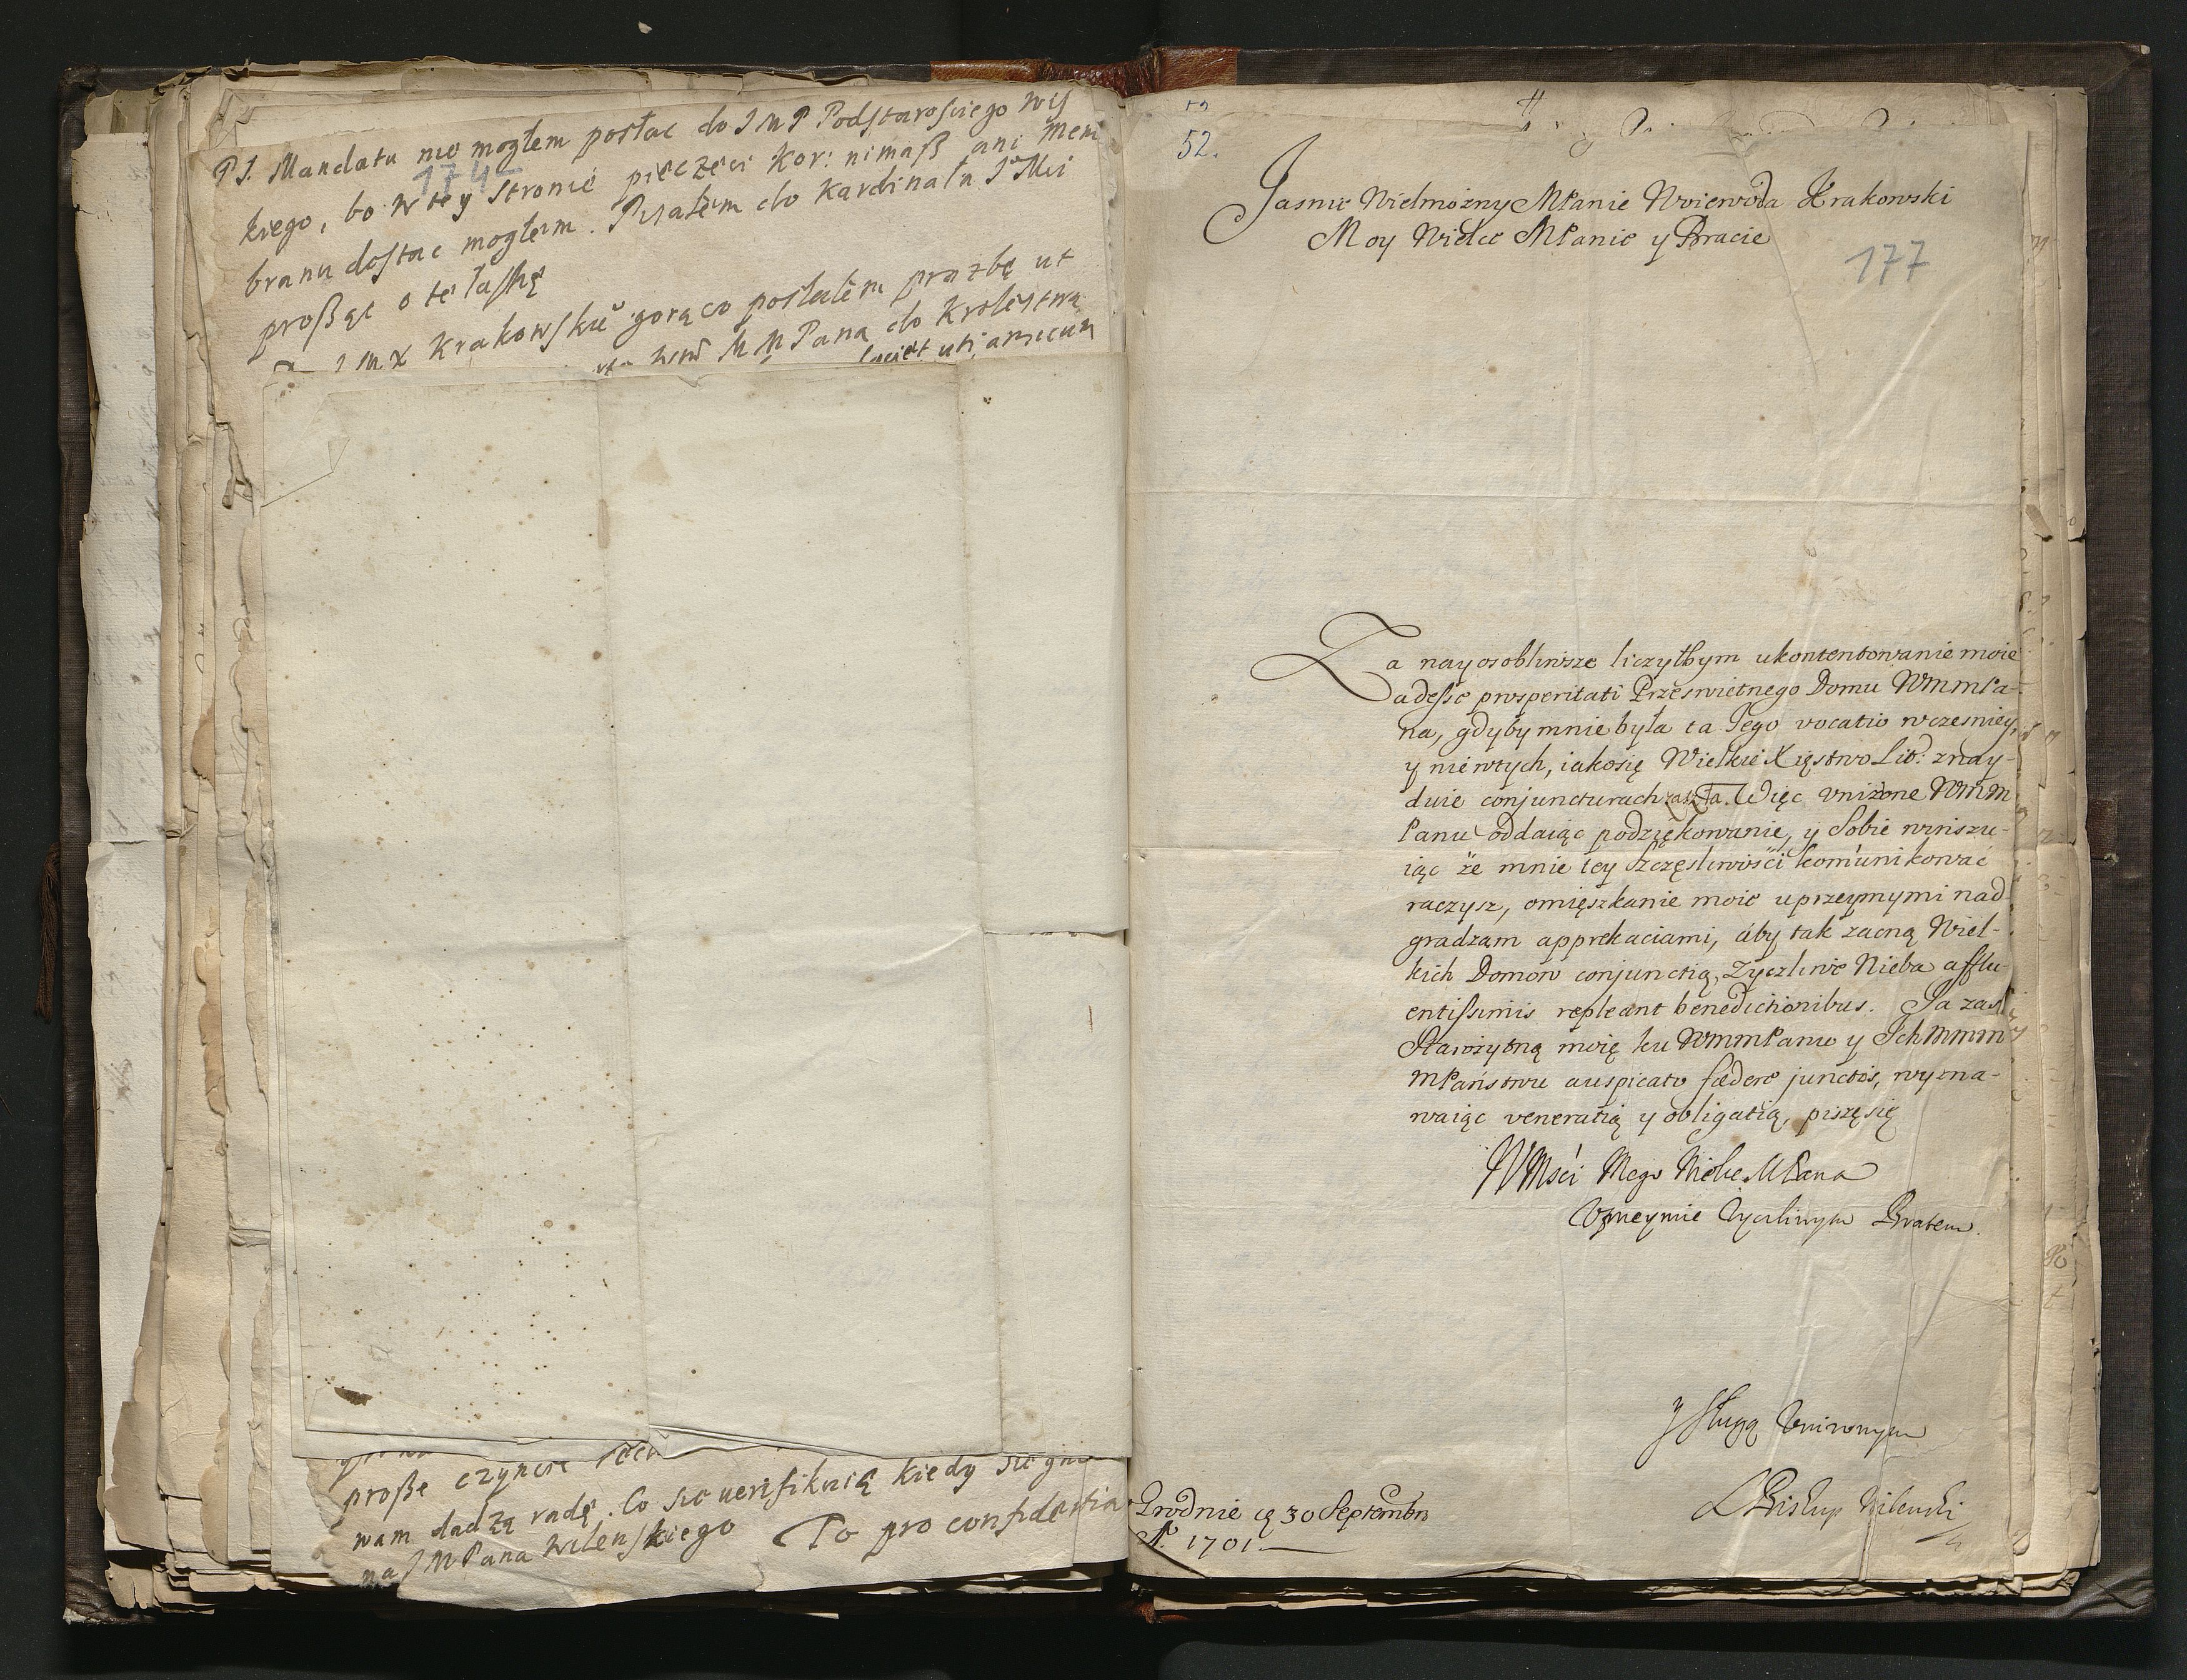 PS. Mandatu nie mogłem posłac do J M P Podstarosciego Wis
kiego, bo w tey stronie pieczęci Kor: nimaß ani mem
174
branu dostac mogłem. Pisałem do Kardinała J Mci
proßąc o tę łaskę
J M X Krakowsku gorąco posłałem prozbę ut
M M Pana do Krolestwa
uti amicum
proße czyncie
wam dadzą radę. Co sie verifikuią kiedy
na J M Pana Wilenskiego To pro confidentia
52.
Jasnie Wielmożny MPanie Woiewoda Krakowski
Moy Wielce MPanie y Bracie
177
Za nayosobliwsze liczyłbym ukontentowanie moie
adesse prosperitati Prześwietnego Domu WMMPa-
na, gdyby mnie była ta Jego vocatio wcześniey,
y nie wtych, iakosię Wielkie Xięstwo Lit: znay-
duie conjuncturach zaszła. Więc vniżone WMM
Panu oddaiąc podziękowanie, y Sobie winszu-
iąc że mnie tey szczęśliwości komunikować
raczysz, omięszkanie moie uprzeymymi nad-
gradzam apprekaciami, áby tak zacną Wiel-
kich Domow conjunctią, Zyczliwe Nieba afflu-
entissimis repleant benedictionibus. Ja zaś
Starożytną moię ku WMMPanu y Ich MMM
MPaństwu auspicato fœdere junctis, wyzna-
waiąc veneratią y obligatią, piszę się
WMści Mego Wielce MPana
Vprzeymie Zyczliwym Bratem
y sługą Vnizonym
Grodnie ię 30 Septembris
A. 1701.
Biskup Wilenski